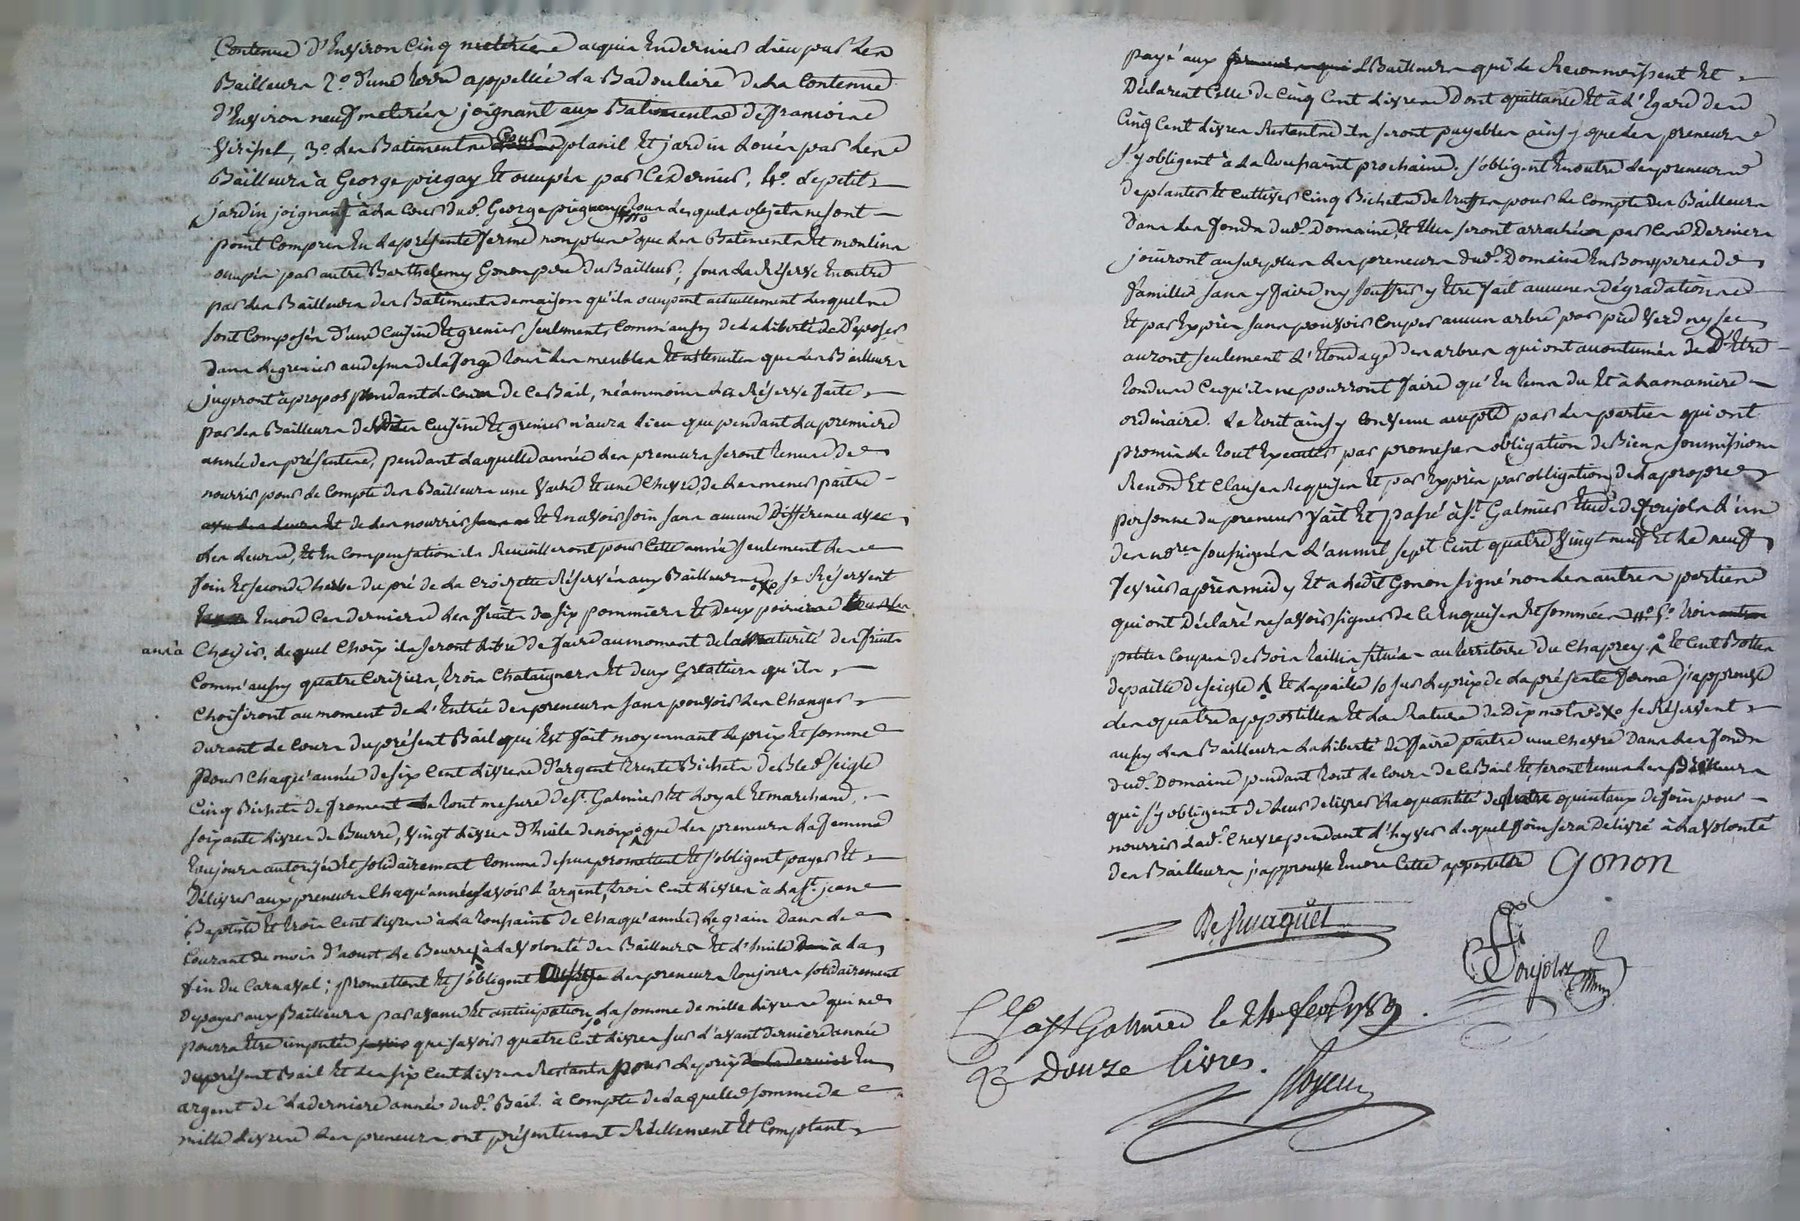 Contenue d'Environ Cinq meterée acquis Endernier lieu par Les
Bailleurs 2.o d'une terre appellée La Badouliere de La Contenue
d'Environ neuf meterées joignant aux Batiments de francoise
3.o des Batiments Cour plasnil Et jardin Loués par Les
Bailleurs à George piegay Et occupés par Ce dernier, 4.o le petit
jardin joignant à La Cour dud. George piegay tous Lesquels objets ne sont
point Compris En La présente ferme non plus que Les Batiments Et moulins
occupés par autre Barthelemy Gonon pere du Bailleur; sous La Réserve En outre
par Les Bailleurs des Batiments de maison qu'ils occupent actuellement Lesquels
sont Composés d'une Cuisine Et grenier seulement, Comm'aussy de La liberté de Déposer
dans Le grenier au dessus de La forge tous Les meubles Et ustensiles que Les Bailleurs
jugeront àpropos pendant Le Cours de Ce Bail, néammoins La Réserve faite
par Les Bailleurs des dits Cuisine Et grenier n'aura Lieu que pendant La premiere
année des présentes, pendant Laquelle année Les preneurs seront tenus de
nourrir pour Le Compte des Bailleurs une Vache Et une Chevre, de Les mener paitre
avec Les Leurs Et de Les nourrir Et En avoir soin sans aucune Différence avec
Les Leurs, Et En Compensation ils Recuilleront pour Cette année seulement Le
foin Et seconde herbe du pré de La Croizette Réservés aux Bailleurs se Réservent
Encore Ces derniers Les fruits de six pommiers Et Deux poiriers
aux à Choisir, Lequel Choix ils seront Libre de faire au moment de La maturité des fruits
Comm'aussy quatre Ceriziers, trois Chataigners Et deux Greottiers qu'ils
Choisiront au moment de L'Entrée des preneurs sans pouvoir Les Changer
durant Le Cours du présent Bail qui Est fait moyennant Le prix Et somme
pour Chaqu'année de six Cent Livres d'argent trente Bichets de Bled seigle
Cinq Bichets de froment Le tout mesure de St. Galmier Et Loyal Et marchand,
soixante Livres de Beurre, vingt Livres d'huile de noix que Les preneurs La femme
toujours autorisée Et solidairement Comme dessus promettent Et s'obligent payer Et
Délivrer aux preneurs Chaqu'année savoir L'argent, trois Cent Livres à La St. jean
Baptiste Et trois Cent Livres à La toussaint de Chaqu'année, Le grain Dans Le
Courant du mois d'aoust Le Beurre à La volonté des Bailleurs Et L'huile à La
fin du Carnaval; promettent Et s'obligent Les preneurs toujours solidairement
De payer aux Bailleurs par avance Et anticipation La somme de mille Livres qui ne
pourra Etre imputée que savoir quatre Cent Livres sur L'avant derniere année
du présent Bail Et Les six Cent Livres Restants pour Le prix En
argent de La derniere année dud. Bail. à Compte de Laquelle somme de
mille Livres Les preneurs ont présentement Réellement Et Comptant
payé aux Bailleurs qui Le Reconnoissent Et
Déclarent Celle de Cinq Cent Livres Dont quittance Et à L'Egard des
Cinq Cent Livres Restantes ils seront payables ainsy que Les preneurs
s'y obligent à La toussaint prochaine; s'obligent En outre Les preneurs
de planter Et Cultiver Cinq Bichets de truffes pour Le Compte des Bailleurs
Dans Les fonds dud. Domaine, Et Elles seront arrachées par Ces Derniers
jouiront au surplus Les preneurs dud. Domaine En Bons peres de
familles sans y faire ny souffrir y Etre fait aucunes Dégradations
Et par Exprès sans pouvoir Couper aucun arbre par pied verd ny sec
auront seulement L'Etondage des arbres qui ont accoutumés de D'Etre
tondus Ce qu'ils ne pourront faire qu'En tems du Et à La maniere
ordinaire. Le tout ainsy Convenu accepté par Les parties qui ont
promis Le tout Executer par promesses obligation de Biens soumissions
Renon. Et Clauses Requises Et par Exprès par obligation de La propre
personne du preneur fait Et passé à St. Galmier Etude de foujols L'un
des no.res soussignés L'an mil sept Cent quatre Vingt neuf Et Le neuf
fevrier après midy Et a Ledit Gonon signé non Les autres parties
qui ont Déclaré ne savoir signer de Ce Enquises Et sommées 4.o 5.o trois
petites Coupes de Bois taillis situées au territoire du Chaprey. Et Cent Bottes
de paille de seigle Et La paille 10 sur Le prix de La présente ferme j'approuve
Les quatre appostilles Et La Rature de Dix mots se Réservent
aussy Les Bailleurs La Liberté de faire paitre une Chevre Dans Les fonds
dud. Domaine pendant tout Le Cours de Ce Bail Et seront tenus Les preneurs
qui s'y obligent de Leur delivrer La quantité de quatre quintaux de foin pour
nourrir Lad. Chevre pendant L'hyver Lequel foin sera Délivré à La volonté
des Bailleurs j'approuve Encore Cette appostille Gonon
foujols
à St Galmier le 24 fevr 1789.
R/ Douze livres.